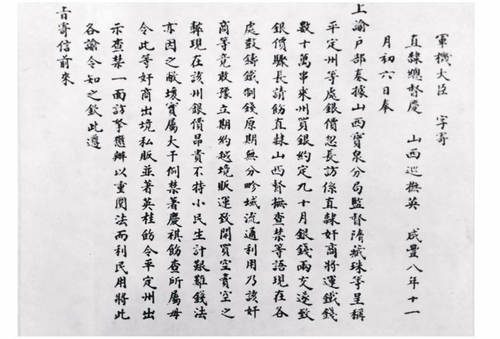 軍機大臣 字寄
直隸總督慶 山西巡撫英 咸豐八年十一
月初六日奉
上諭戶部奏據山西寶泉分局監督隋藏珠等呈稱
平定州等處銀價忽長訪係直隸奸商將運鐵錢
數十萬串來州買銀約定九十月銀錢兩交遂致
銀價驟長請飭直隸山西督撫查禁等語現在各
處鼓鑄鐵制錢原期無分畛域流通利用乃該奸
商等竟敢豫立期約越境販運致開買空賣空之
弊現在該州銀價昂貴不特小民生計艱難錢法
亦因之敝壞實屬大干例禁著慶祺飭查所屬毋
令此等奸商出境私販並著英桂飭令平定州出
示查禁一面訪拏懲辦以重圜法而利民用將此
各諭令知之欽此遵
旨寄信前來